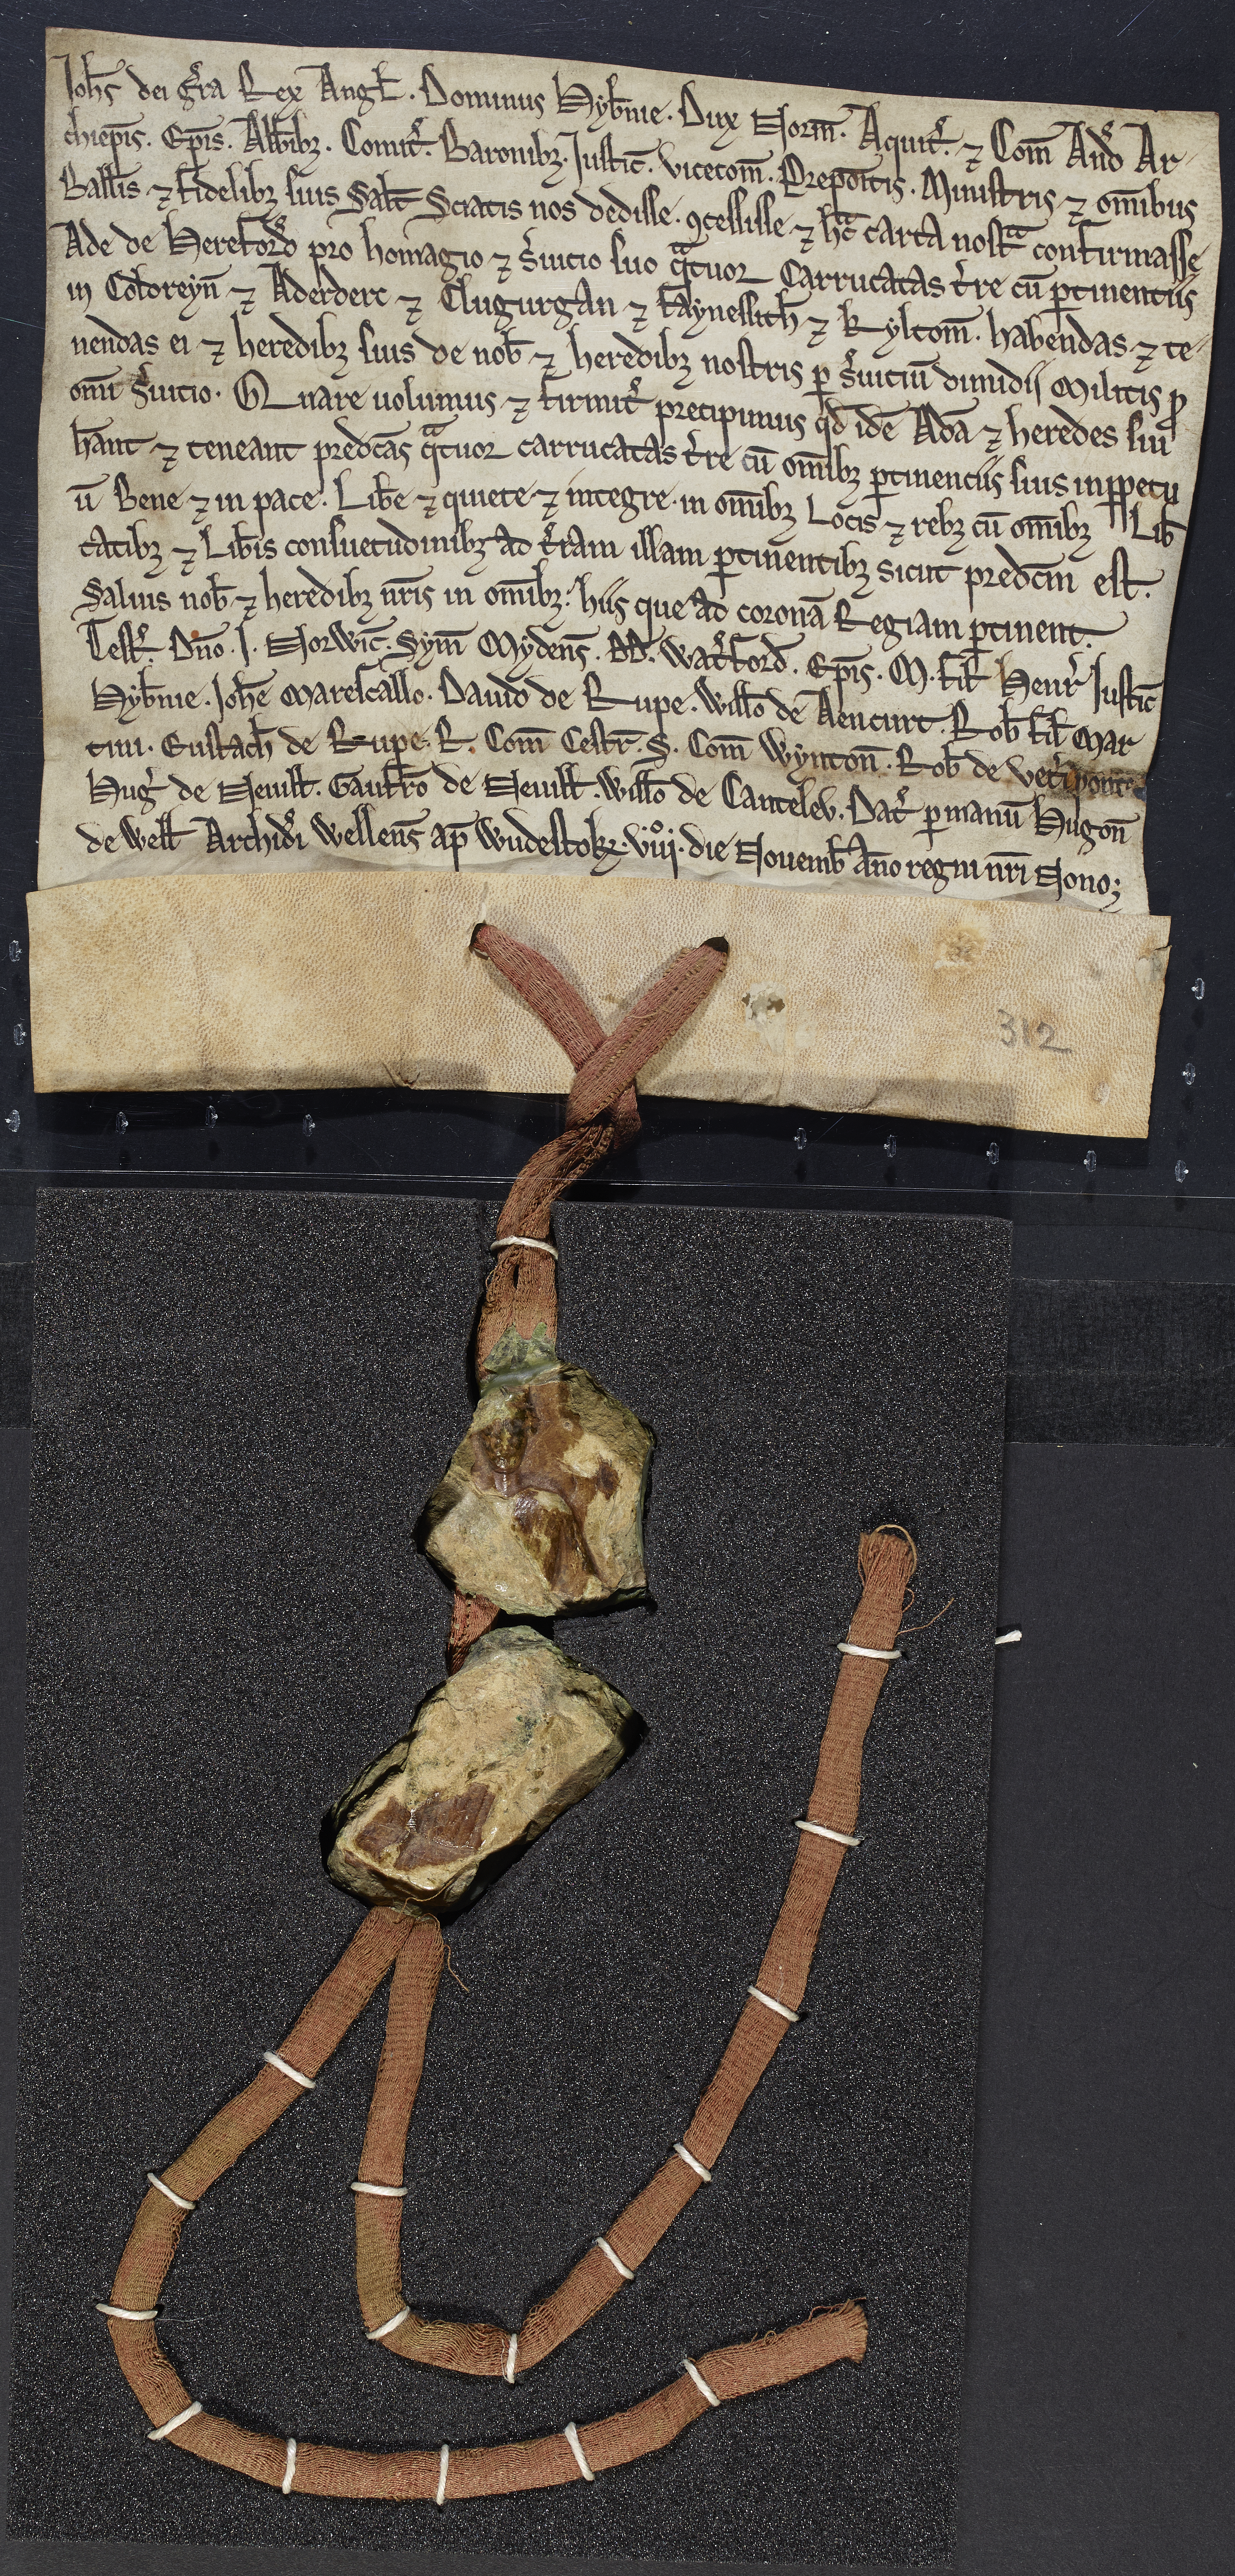 Joh̅s dei gr̃a Rex Angl̅. Dominus Hyb̅nie. Dux Norm̅. Aquit̃. ⁊ Com̅ And̃ Ar
chiep̅is. Ep̅is. Abb̅ibꝫ. Comit̃. Baronibꝫ. Justic̅. vicecom̅. Prepoſitis. Miniſtris ⁊ om̅ibus
Ball̅is ⁊ fidelibꝫ ſuis Salt̅ Sciatis nos dediſſe. ꝯceſſiſſe ⁊ hac̅ carta noſtᵃ confirmaſſe
Ade de Hereford̃ pro homagio ⁊ ſ̃uicio ſuo qᵃtuor Carrucatas t̃re cu̅ ꝑtinentiis
in Coloreyn̅ ⁊ Aderderc ⁊ Clugurgan ⁊ Fayneſſith̅ ⁊ Kylcom̅. habendas ⁊ te
nendas ei ⁊ heredibꝫ ſuis de nob̅ ⁊ heredibꝫ noſtris ꝑ ſ̃uiciu̅ dimidij Militis ꝓ
om̅i ſ̃uicio. Quare uolumus ⁊ firmit̃ precipimus qd̅ ide̅ Ada̅ ⁊ heredes ſui
ha̅nt ⁊ teneant predc̅as qᵃtuor carrucatas t̃re cu̅ om̅ibꝫ ꝑtinenciis ſuis inꝑpetu
u̅ Bene ⁊ in pace. Lib̅e ⁊ quiete ⁊ integre. in om̅ibꝫ Locis ⁊ rebꝫ cu̅ om̅ibꝫ Lib̅
tatibꝫ ⁊ Lib̅is conſuetudinibꝫ ad t̃ram illam ꝑtinentibꝫ sicut predc̅m eſt.
Saluis nob̅ ⁊ heredibꝫ nr̅is in om̅ibꝫ: hiis que ad corona̅ Regiam ꝑtinent.
Teſt̃. Dn̅o. J. Norwic̅. Sym̅ Mydens̅. Wat̃ford̅. Ep̅is. M. fil̅ Henr̃ Juſtic̅
Hyb̅nie. Joh̅e Mareſcallo. Dauid de Rupe. Will̅o de Aencurt. Rob̅ fil̅ Mar
tini. Euſtach̅ de Rupe. R. Com̅ Ceſtr̅. S. Com̅ Wynton̅. Rob̅ de vet̃i ponte
Hug̃ de Neuill̅. Gaufr̅o de Neuill̅. Will̅o de Cantelev̅. Dat̃ ꝑ manu̅ Hugon̅
de Well̅ Archid̃i Wellens̅ ap̅ Wudeſtok̅. viijᵒ. die Nouemb̅ An̅o regni nr̅i Nono;
312